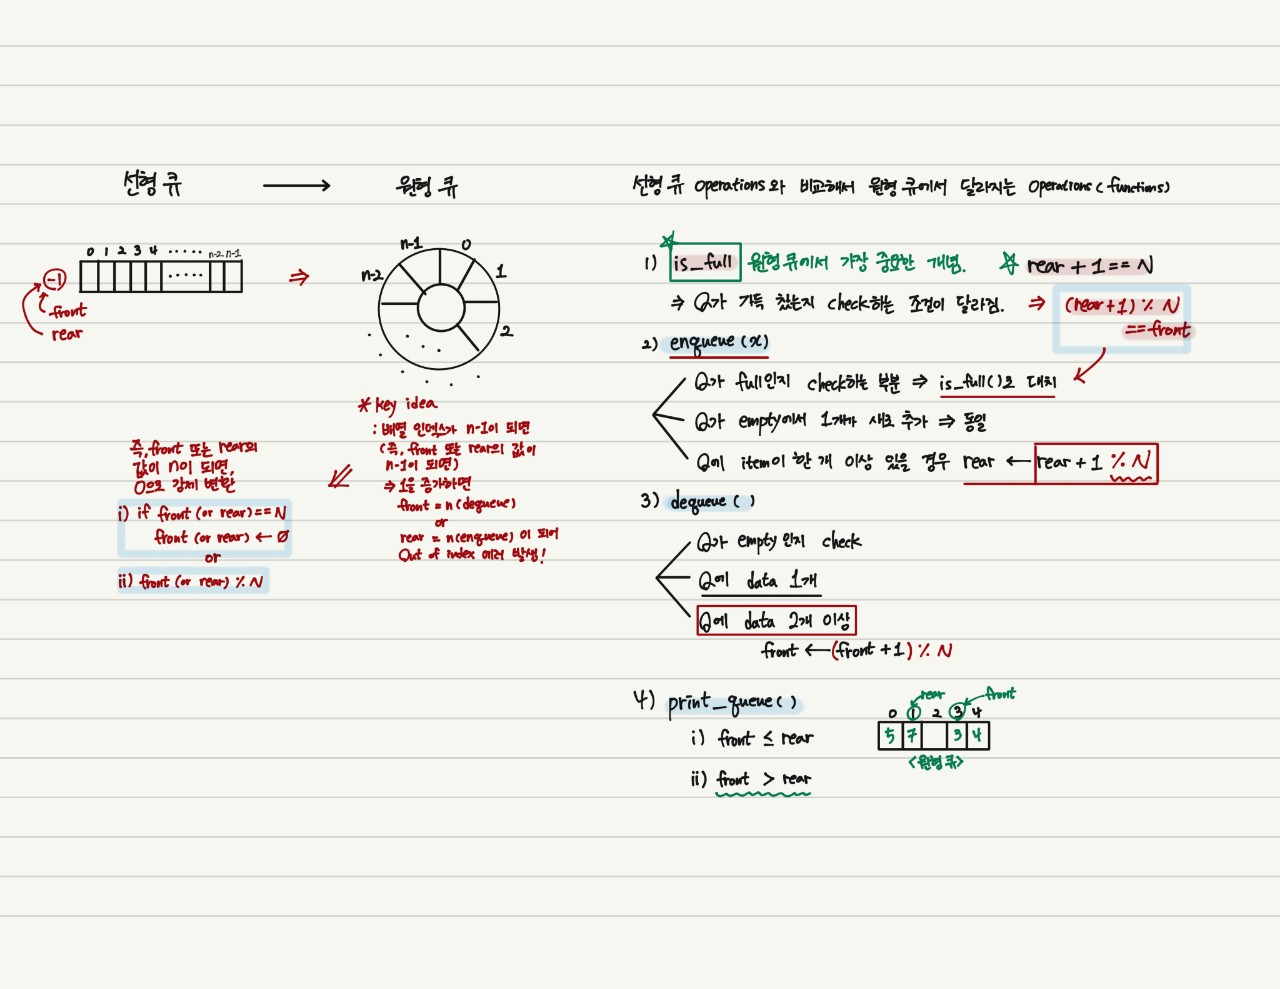 선형 큐 → 원형 큐
0 1 2 3 4 ..... n-2 n-1
.....
-1
front
rear
⇒
n-1 0
n-2 1
2
* key idea
: 배열 인덱스가 n-1이 되면
(즉, front 또는 rear의 값이
n-1이 되면)
⇒ 1을 증가하면
front = n (dequeue)
or
rear = n(enqueue) 이 되어
Out of index 에러 발생!
즉, front 또는 rear의
값이 n이 되면,
0으로 강제 변환
i) if front (or rear) == N
front (or rear) ← 0
or
ii) front (or rear) % N
선형 큐 operations와 비교해서 원형 큐에서 달라지는 operations (functions)
1) is_full 원형 큐에서 가장 중요한 개념. ☆ rear + 1 == N
⇒ Q가 가득 찼는지 check하는 조건이 달라짐. ⇒ (rear+1) % N
== front
2) enqueue (x)
Q가 full인지 check하는 부분 ⇒ is_full()로 대치
Q가 empty에서 1개가 새로 추가 ⇒ 동일
Q에 item이 한 개 이상 있을 경우 rear ← rear + 1 % N
3) dequeue ( )
Q가 empty 인지 check
Q에 data 1개
Q에 data 2개 이상
front ← (front + 1) % N
4) print_queue ( )
i) front ≤ rear
ii) front > rear
rear front
0 1 2 3 4
5 7 3 4
<원형 큐>